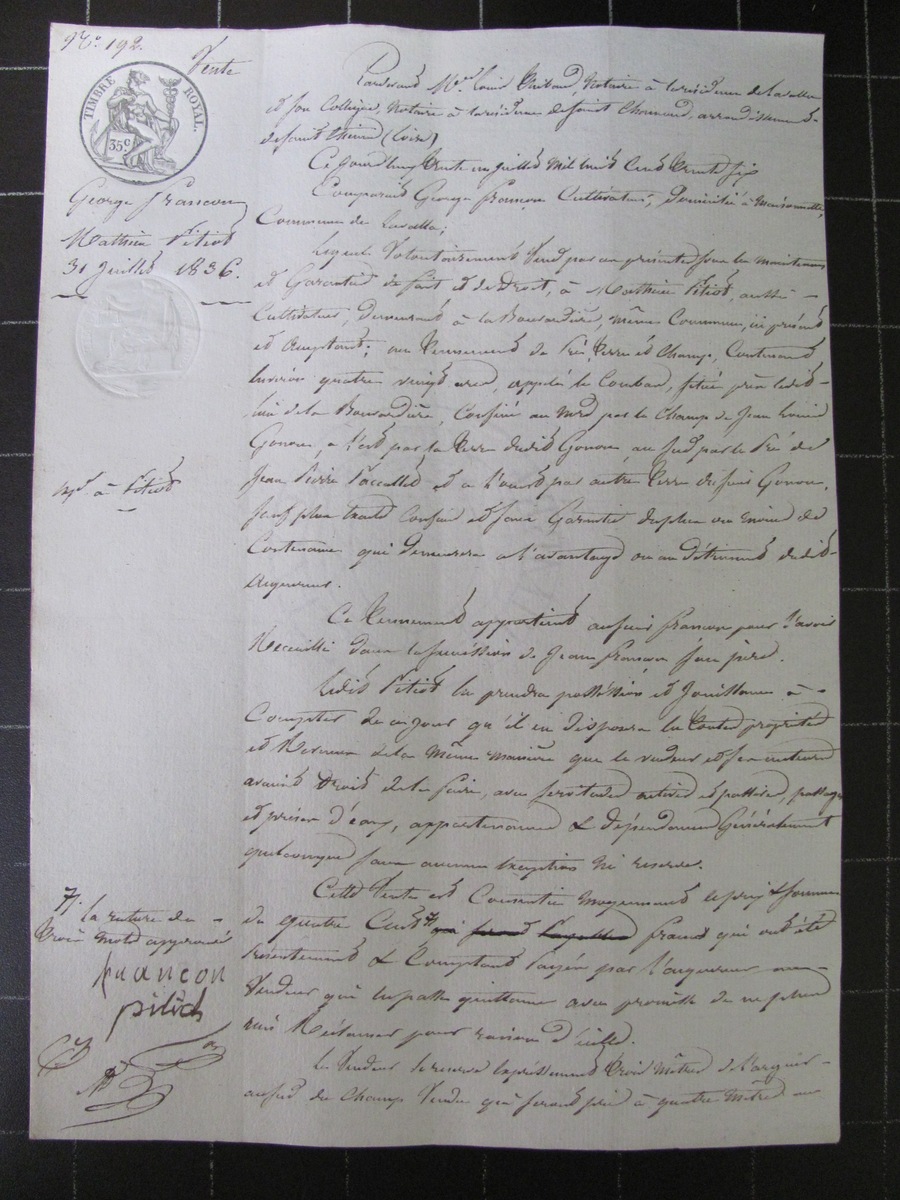 N.o 192.
Vente
TIMBRE ROYAL.
35c.
George Francon
Mathieu Pitiot
31 Juillet 1836.
Pardevant Mre Louis Notaire à la résidence de Lavalla
et son Collègue, Notaire à la résidence de Saint Chamond, arrondissement
de Saint Etienne (Loire)
Ce jourd'huy trente un juillet mil huit cent trente six
Comparait George françon Cultivateur, Domicilié à Maisonnette,
Commune de Lavalla;
Lequel Volontairement Vend par ces présentes sous la maintenue
et Garantie de fait et de Droit, à Mathieu Pitiot, aussi
Cultivateur, demeurant à la même Commune, ici présent
et acceptant; un Tennement de Pré, Terre et Champ, Contenant
environ quatre vingt ares, appelé le situé près ledit
lieu de la Confiné au Nord par le Champ de Jean Louis
Gonon, à l'est par la Terre dudit Gonon, au Sud par le Pré de
Jean Pierre et à l'ouest par autre Terre du sieur Gonon,
sauf plus vrais Confins et sans Garantie du plus ou moins de
Contenance qui demeurera à l'avantage ou au détriment dudit
Acquereur.
exp.on à Pitiot
Ce Tennement appartient au sieur françon pour l'avoir
Recueilli dans la succession de Jean françon son père.
Ledit Pitiot en prendra possession et Jouissance à
Compter de ce jour qu'il en disposera en toute propriété
et Revenus de la Même manière que le vendeur et ses auteurs
avaient Droit de le faire, avec servitudes actives et passives, passages
et prises d'eau, appartenances & dépendances Généralement
quelconques sans aucune exception ni reserve.
Cette Vente est Consentie moyennant le prix & somme
de quatre Cents francs qui ont été
présentement & Comptant payés par l'acquereur au
Vendeur qui en passe quittance avec promesse de ne plus
rien Réclamer pour raison d'icelle.
Le Vendeur se reserve Expressément trois mètres de largeur
au sud du Champ Vendu qui seront pris à quatre mètres au
7. la rature de
trois mots approuvée
francon
pitiot